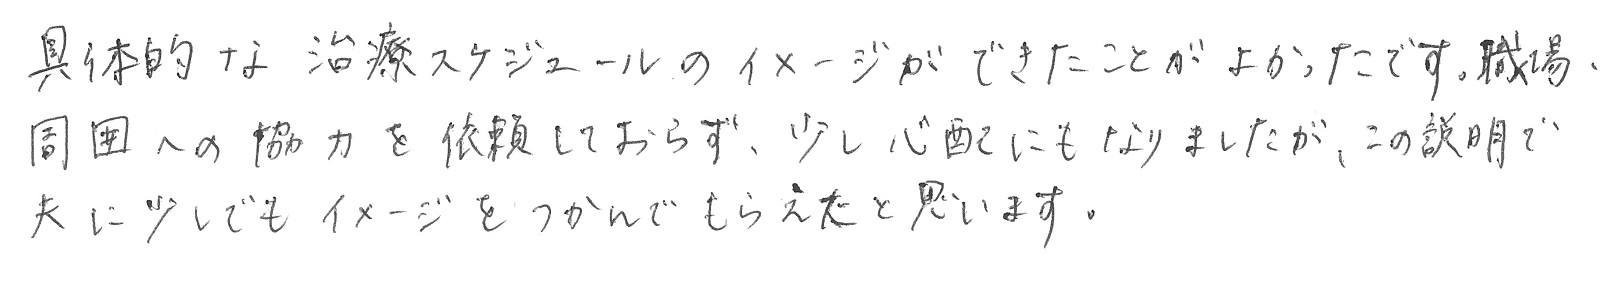 具体的な治療スケジュールのイメージができたことがよかったです。職場、
周囲への協力を依頼しておらず、少し心配にもなりましたが、この説明で
夫に少しでもイメージをつかんでもらえたと思います。